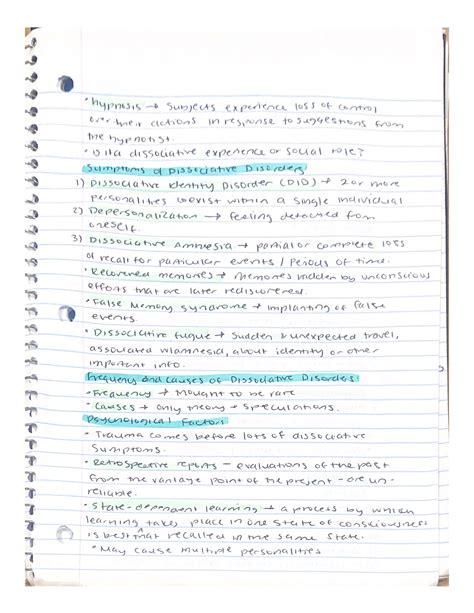 • hypnosis → Subjects experience loss of control
over their actions in response to suggestions from
the hypnotist.
• Is it a dissociative experience or social role?
Symptoms of Dissociative Disorders
1) Dissociative Identity Disorder (DID) → 2 or more
personalities coexist within a single individual
2) Depersonalization → feeling detached from
oneself.
3) Dissociative Amnesia → partial or complete loss
of recall for particular events / periods of time.
• Recovered memories → Memories hidden by unconscious
efforts that are later rediscovered.
• False Memory syndrome → implanting of false
events.
• Dissociative fugue → Sudden & unexpected travel,
associated w/amnesia, about identity or other
important info.
Frequency and causes of Dissociative Disorders:
• Frequency → thought to be rare
• Causes → only theory + speculations.
Psychological Factors
• Trauma comes before lots of dissociative
symptoms.
• Retrospective reports – evaluations of the past
from the vantage point of the present – are un-
reliable.
• State-dependent learning → a process by which
learning takes place in one state of consciousness
is best that recalled in the same state.
• May cause multiple personalities